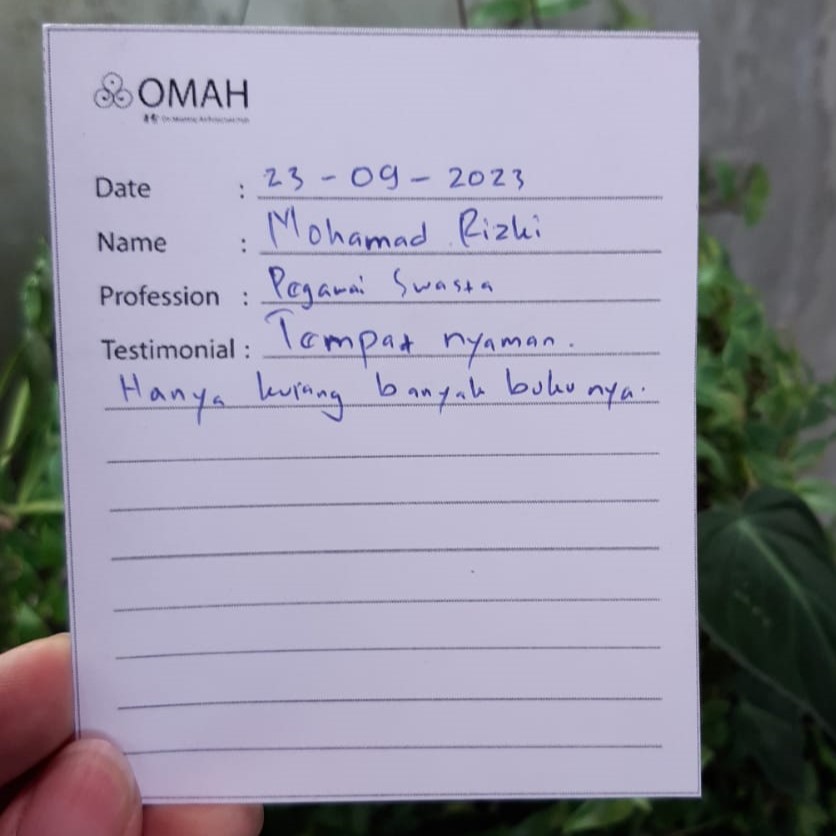 OMAH
Date : 23 - 09 - 2023
Name : Mohamad Rizki
Profession : Pegawai Swasta
Testimonial : Tempat nyaman.
Hanya kurang banyak buku nya.